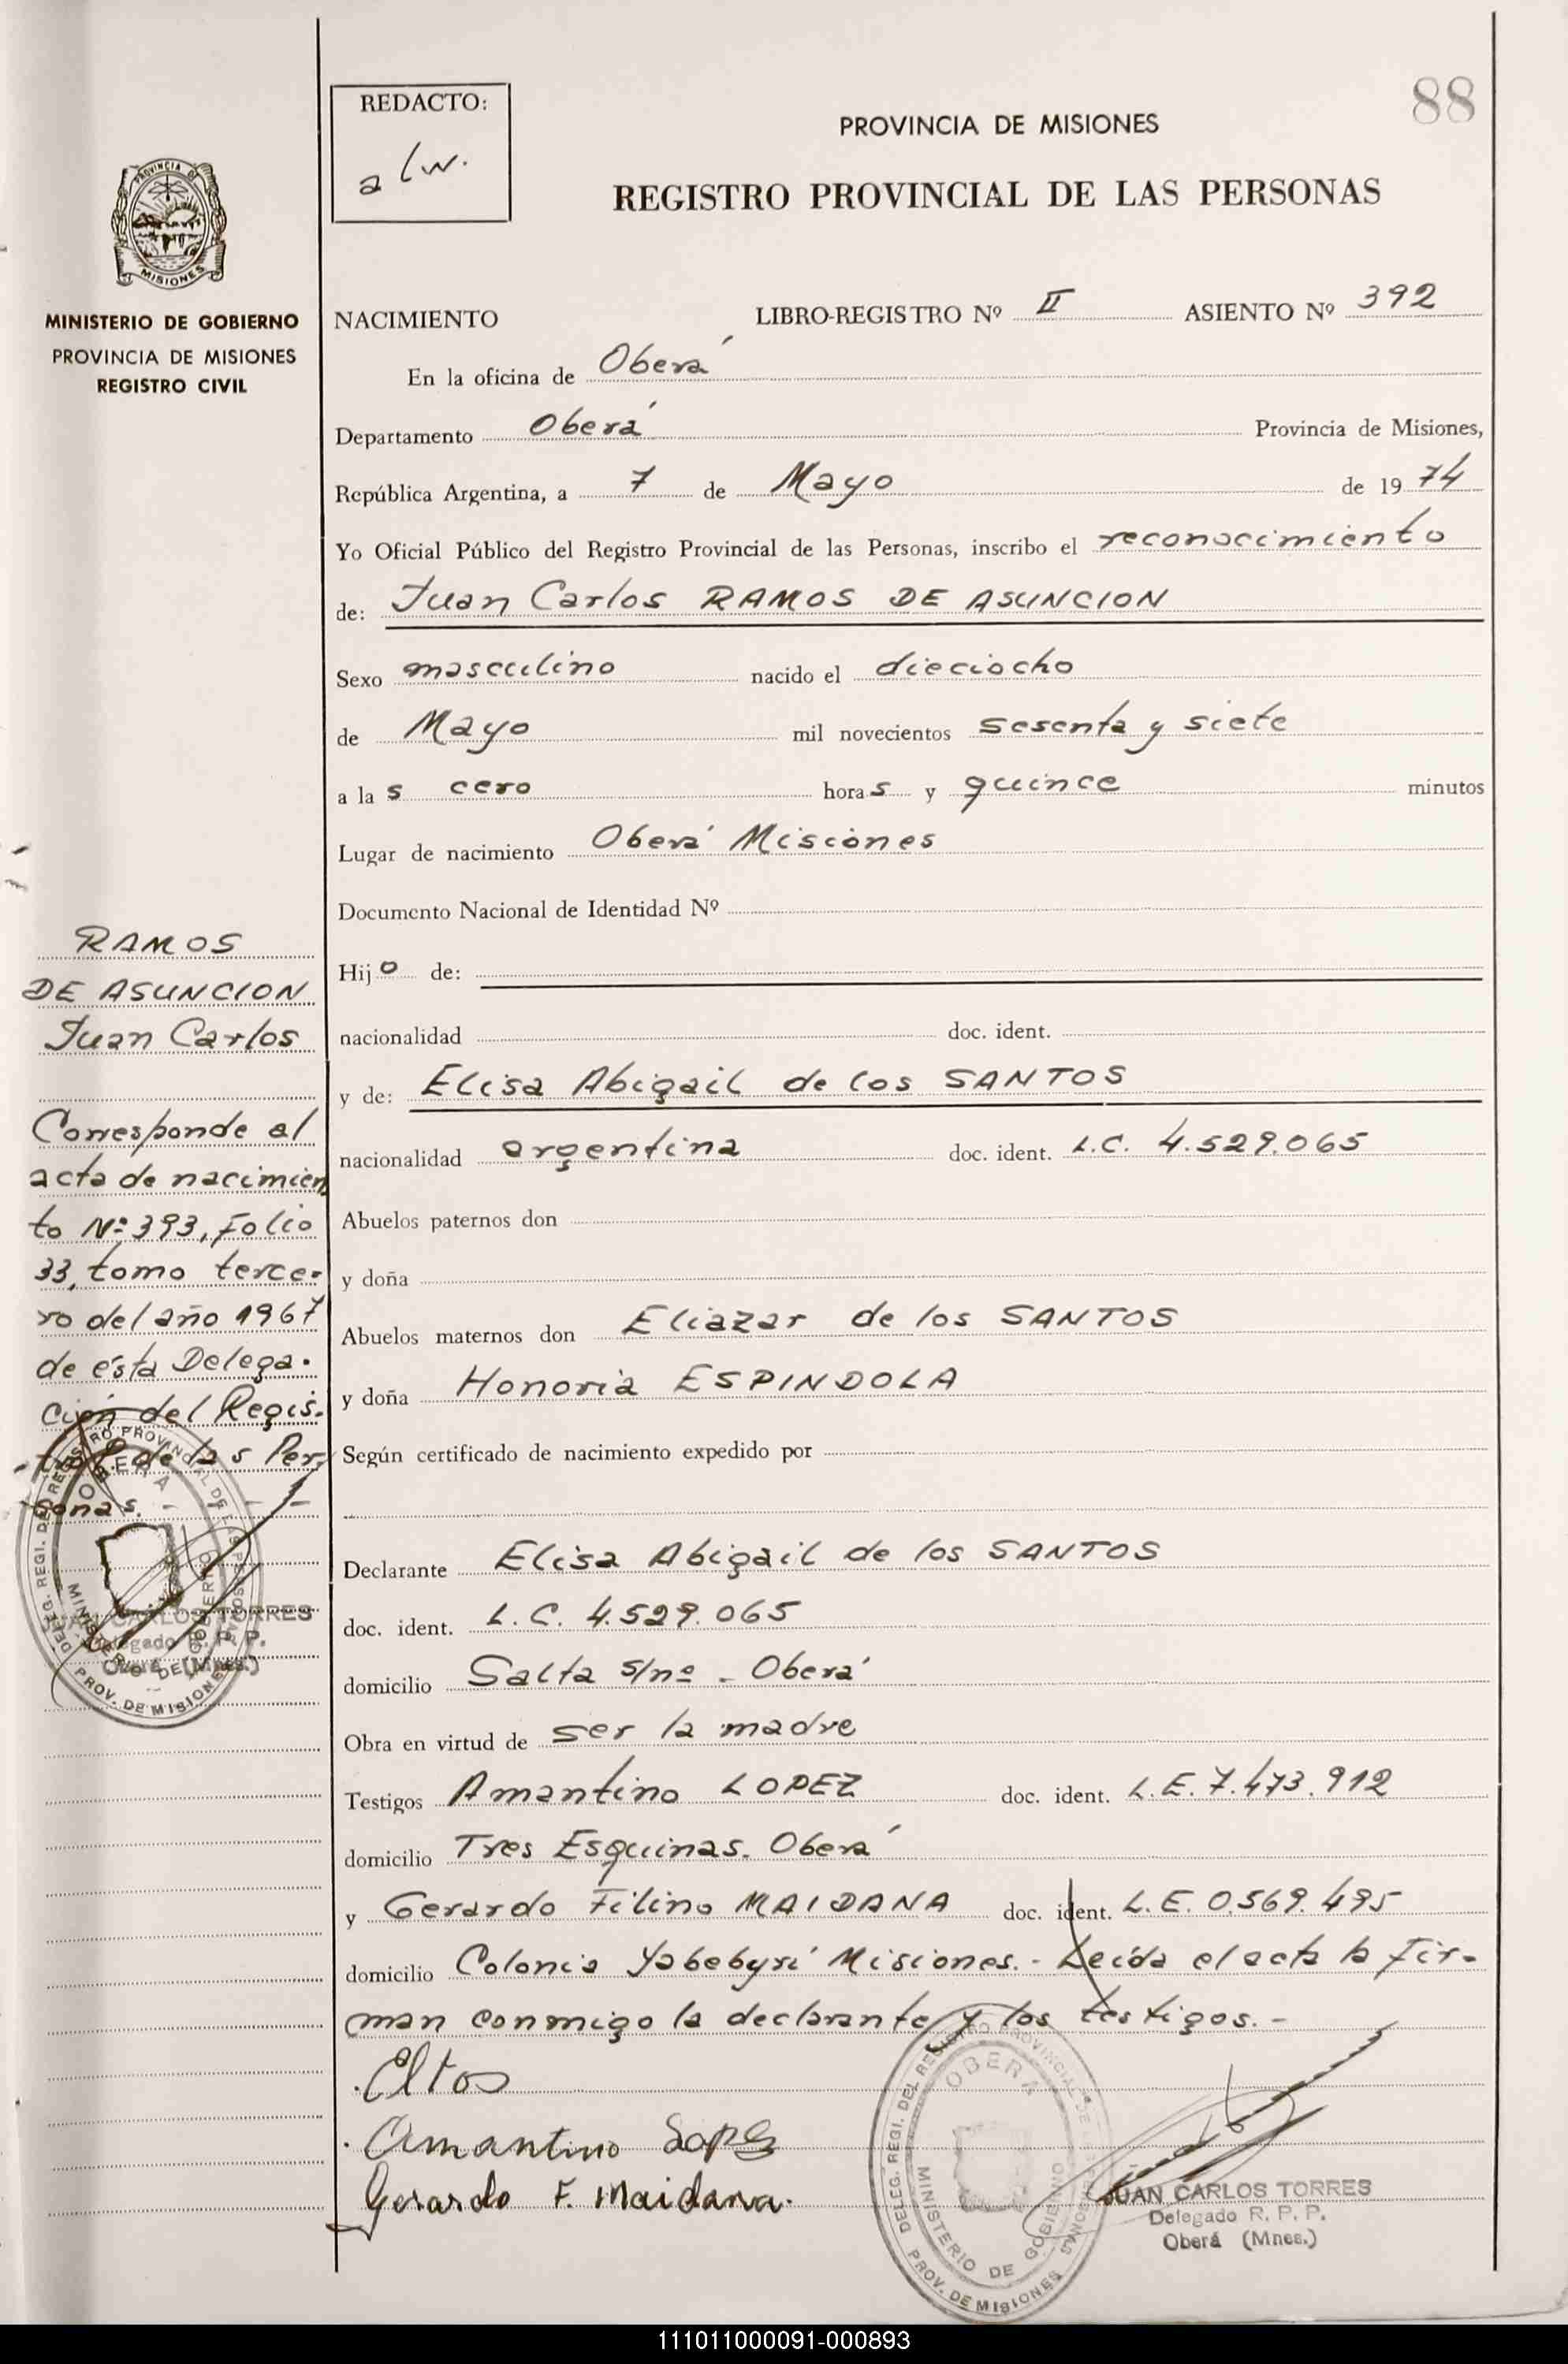 88
REDACTO:
PROVINCIA DE MISIONES
REGISTRO PROVINCIAL DE LAS PERSONAS
PROVINCIA DE
MISIONES
MINISTERIO DE GOBIERNO
PROVINCIA DE MISIONES
REGISTRO CIVIL
NACIMIENTO LIBRO-REGISTRO Nº II ASIENTO Nº 392
En la oficina de Oberá
Departamento Oberá Provincia de Misiones,
República Argentina, a 7 de Mayo de 1974
Yo Oficial Público del Registro Provincial de las Personas, inscribo el reconocimiento
de: Juan Carlos RAMOS DE ASUNCION
Sexo masculino nacido el dieciocho
de Mayo mil novecientos sesenta y siete
a las cero horas y quince minutos
Lugar de nacimiento Oberá Misiones
Documento Nacional de Identidad Nº
Hijo de:
nacionalidad doc. ident.
y de: Elisa Abigail de los SANTOS
nacionalidad argentina doc. ident. L.C. 4.529.065
Abuelos paternos don
y doña
Abuelos maternos don Eliazar de los SANTOS
y doña Honoria ESPINDOLA
Según certificado de nacimiento expedido por
Declarante Elisa Abigail de los SANTOS
doc. ident. L.C. 4.529.065
domicilio Salta s/nº - Oberá
Obra en virtud de ser la madre
Testigos Amantino LOPEZ doc. ident. L.E. 7.473.912
domicilio Tres Esquinas. Oberá
y Gerardo Filino MAIDANA doc. ident. L.E. 0.569.495
domicilio Colonia Yabebyrí Misiones.- Leída el acta la fir-
man conmigo la declarante y los testigos.-
Amantino Lopez
Gerardo F. Maidana.
RAMOS
DE ASUNCION
Juan Carlos
Corresponde al
acta de nacimien
to Nº 393, Folio
33, tomo terce-
ro del año 1967
de ésta Delega-
ción del Regis-
tro P. de las Per-
sonas.
DELEG. REGI. DEL REGISTRO PROVINCIAL DE LAS PERSONAS
OBERA
MINISTERIO DE GOBIERNO
PROV. DE MISIONES
JUAN CARLOS TORRES
Delegado R. P. P.
Oberá (Mnes.)
DELEG. REGI. DEL REGISTRO PROVINCIAL DE LAS PERSONAS
OBERA
MINISTERIO DE GOBIENO
PROV. DE MISIONES
JUAN CARLOS TORRES
Delegado R. P. P.
Oberá (Mnes.)
111011000091-000893